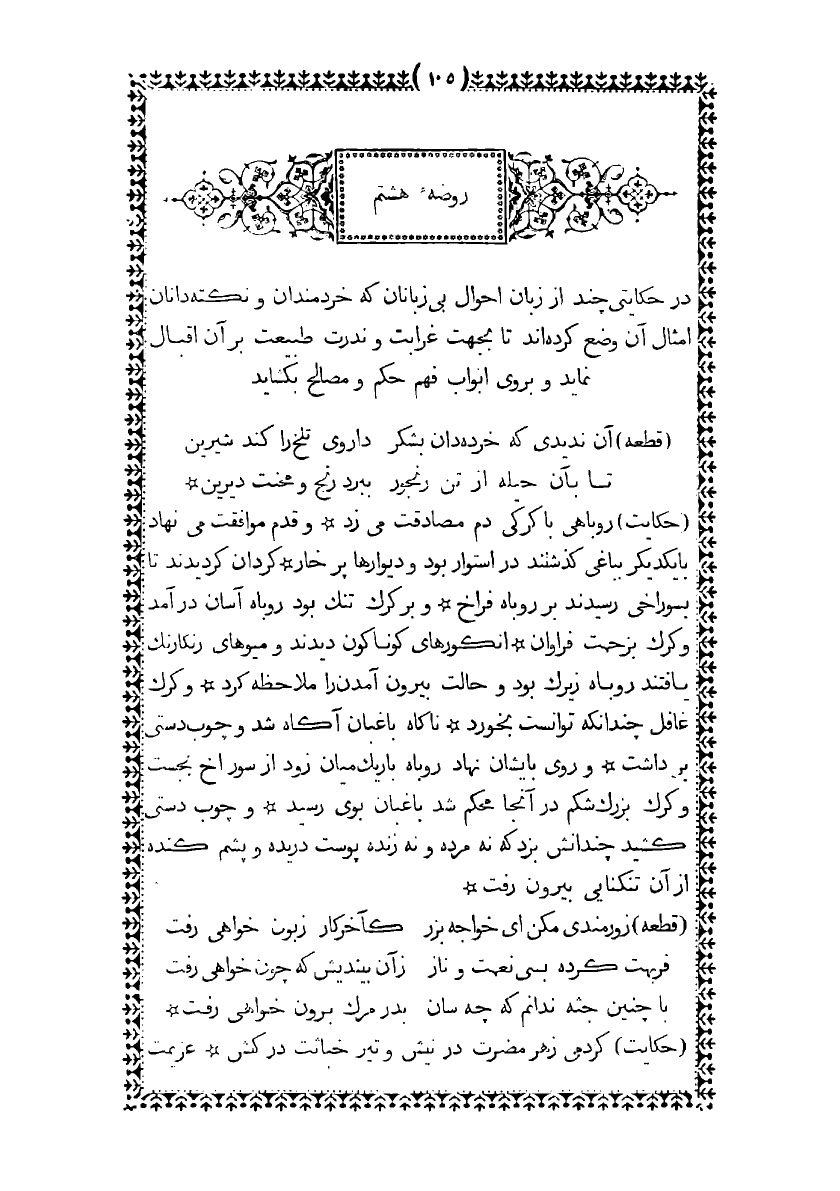 (١٠٥)
روضهٔ هشتم
در حکایتی چند از زبان احوال بی‌زبانان که خردمندان و نکته‌دانان
امثال آن وضع کرده‌اند تا بجهت غرابت و ندرت طبیعت بر آن اقبال
نماید و بروی ابواب فهم حکم و مصالح بکشاید
(قطعه) آن ندیدی که خرده‌دان بشکر داروی تلخ را کند شیرین
تا بآن حیله از تن رنجور ببرد رنج و محنت دیرین ✡
(حکایت) روباهی با کرکی دم مصادقت می زد ✡ و قدم موافقت می نهاد
بایکدیکر بباغی کذشتند در استوار بود و دیوارها پر خار ✡ کردان کردیدند تا
بسوراخی رسیدند بر روباه فراخ ✡ و بر کرك تنك بود روباه آسان در آمد
و کرك بزحمت فراوان ✡ انکورهای کوناکون دیدند و میوهای رنکارنك
یافتند روباه زیرك بود و حالت بیرون آمدن را ملاحظه کرد ✡ و کرك
غافل چندانکه توانست بخورد ✡ ناکاه باغبان آکاه شد و چوب‌دستی
بر داشت ✡ و روی بایشان نهاد روباه باریك‌میان زود از سوراخ بجست
و کرك بزرك‌شکم در آنجا محکم شد باغبان بوی رسید ✡ و چوب دستی
کشید چندانش بزد که نه مرده و نه زنده پوست دریده و پشم کنده
از آن تنکنایی بیرون رفت ✡
(قطعه) زورمندی مکن ای خواجه بزر کآخر کار زبون خواهی رفت
فربهت کرده بسی نعمت و ناز زآن بیندیش که چون خواهی رفت
با چنین جثه ندانم که چه سان بدر مرك برون خواهی رفت ✡
(حکایت) کژدمی زهر مضرت در نیش و تیر خباثت در کش ✡ عزیمت